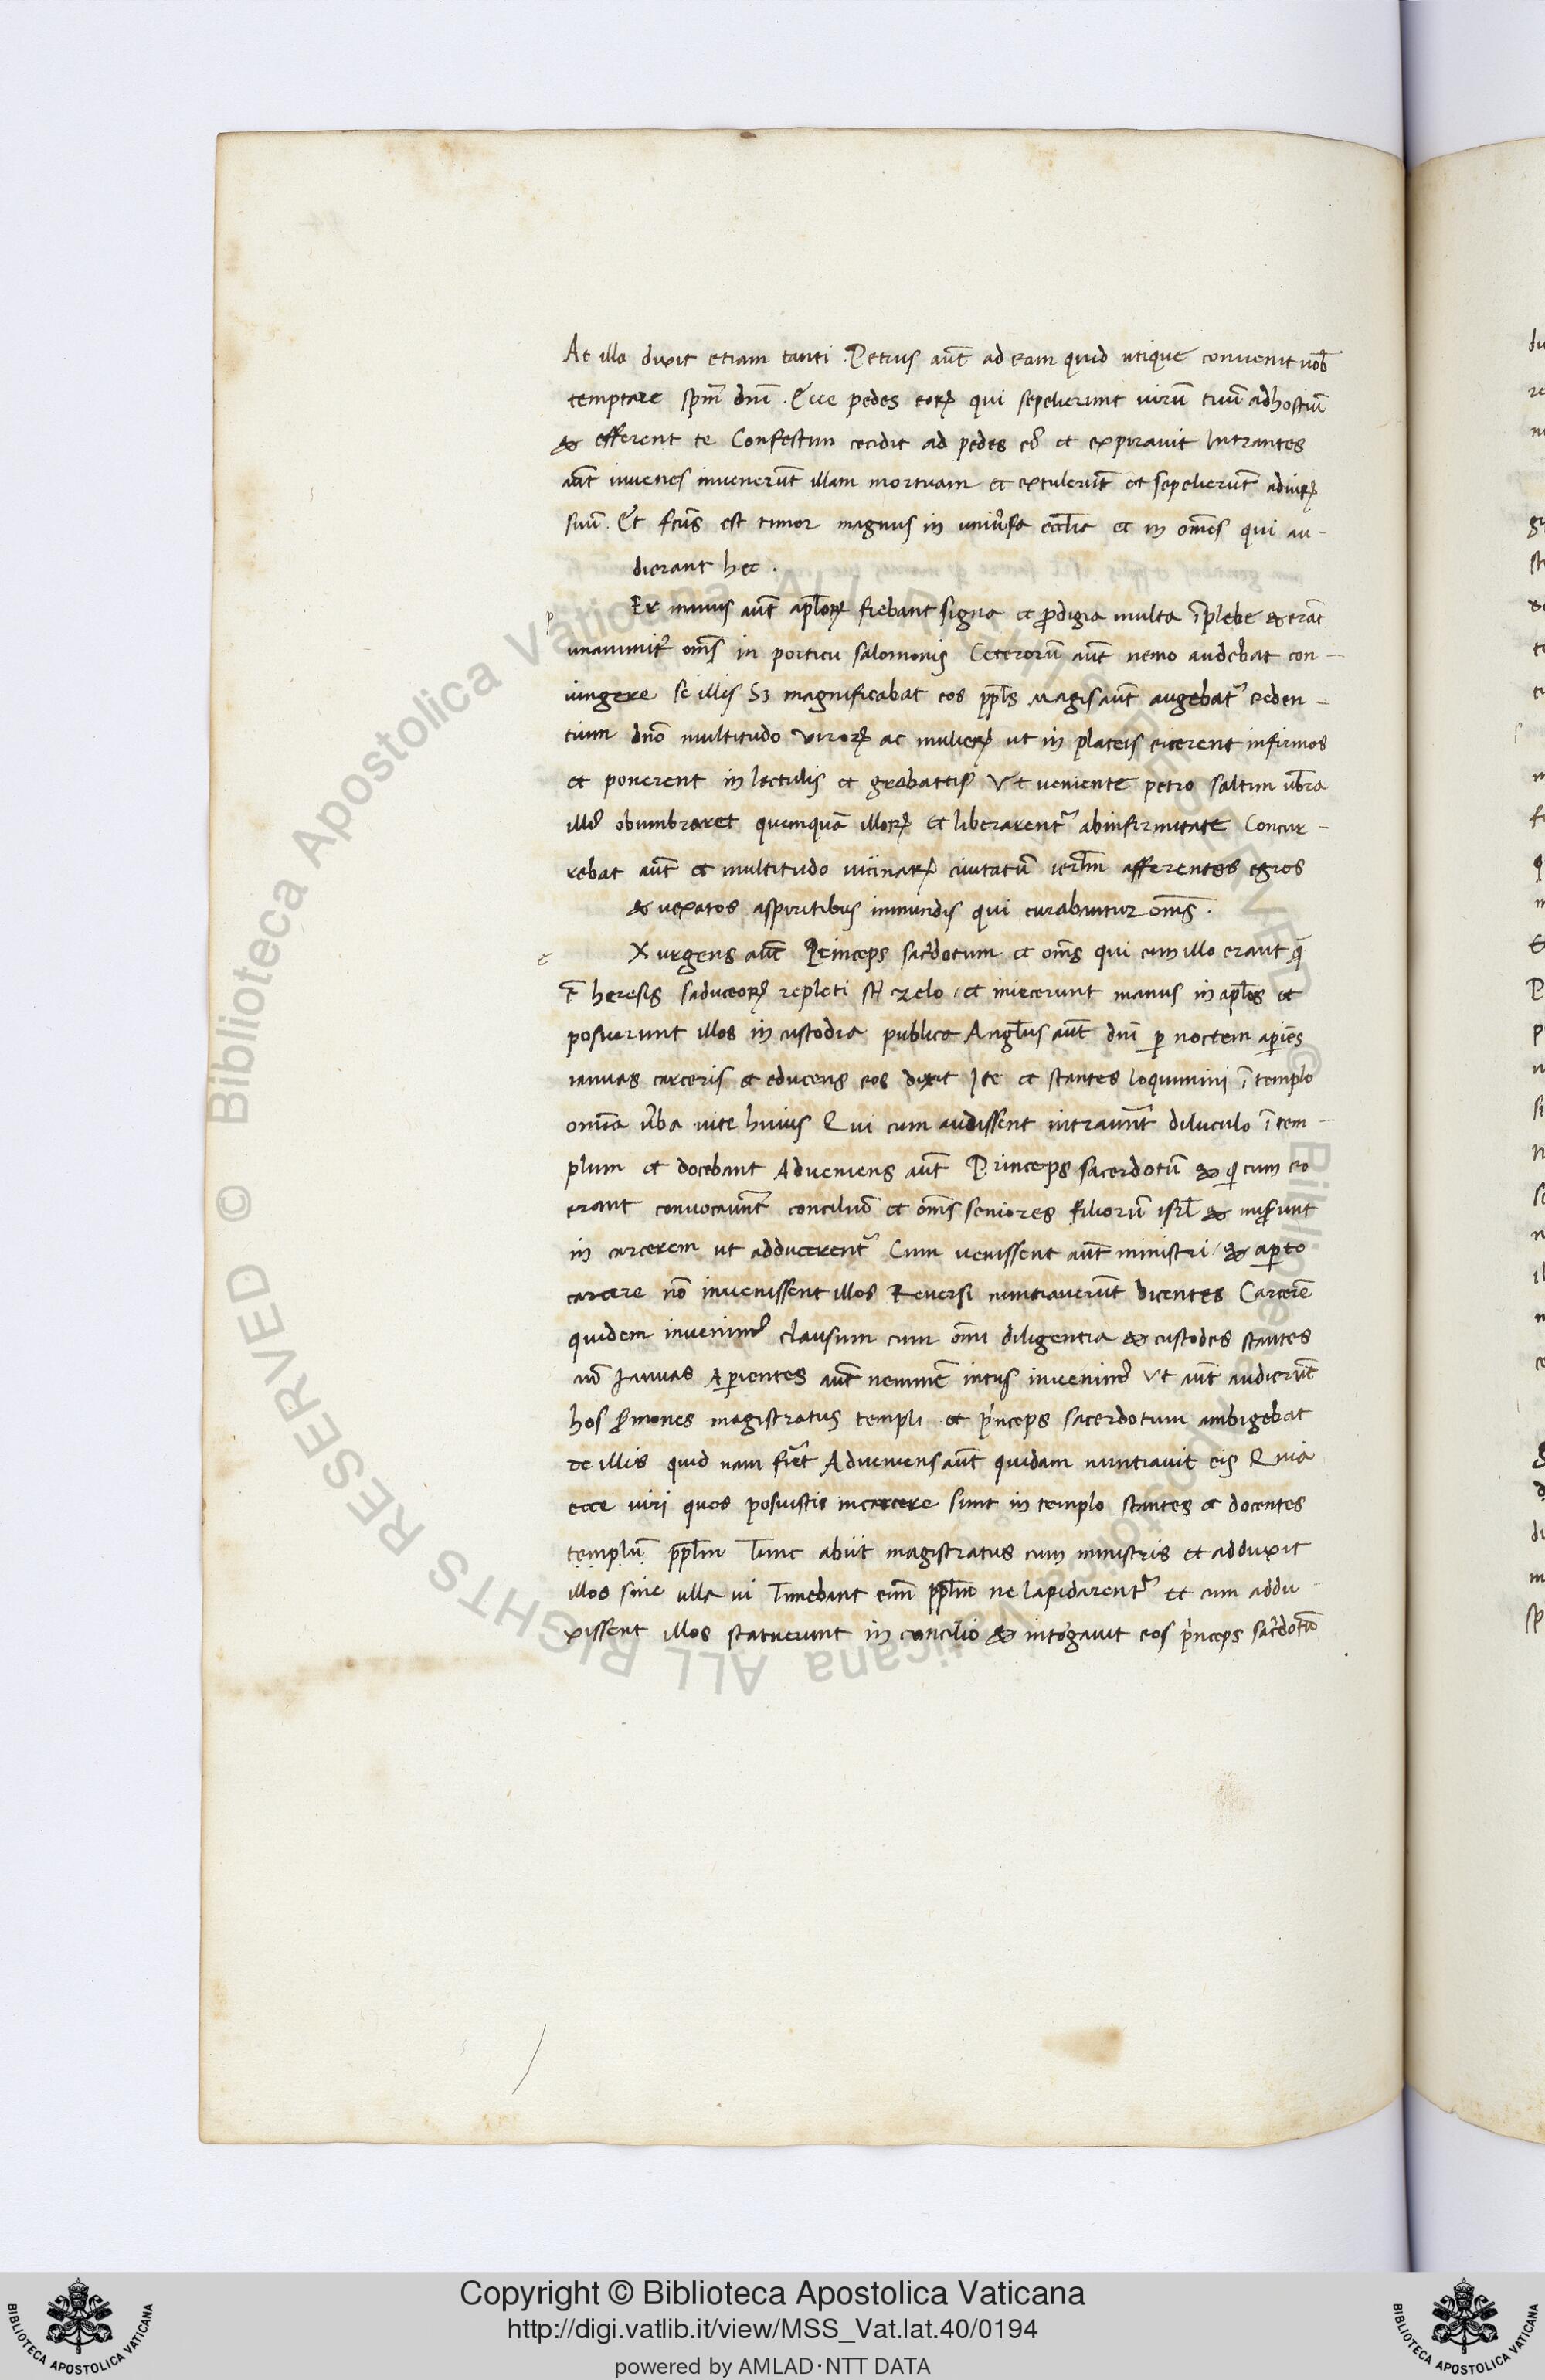 At illa dixit etiam tanti. Petrus aut̄ ad eam quid utique convenit uob̄
temptare spm̄ dnī. Ecce pedes eoꝝ qui sepelierunt uirū tuū ad hostiū
& efferent te Confestim cecidit ad pedes eꝰ et expirauit Intrantes
aūt iuuenes inuenerūt illam mortuam et extulerūt et sepelierūt ad uiꝝ
suū. Et fcūs est timor magnus in uniūsa eccl̄ia et in om̄es qui au-
dierant hec.
p Er manus aūt apl̄oꝝ fiebant signa et ꝓdigia multa ī plebe & erāt
unanimit̄ om̄s in porticu salomonis Ceterorū aūt nemo audebat con-
iungere se illis Sꝫ magnificabat eos ppl̄s Magis aūt augebat᷑ creden-
tium dn̄o multitudo viroꝝ ac mulieꝝ ut in plateis eicerent infirmos
et ponerent in lectulis et grabattis Vt ueniente petro saltim ūbra
illiꝰ obumbraret quemquā illoꝝ et liberarent᷑ ab infirmitate Concur-
rebat aūt et multitudo uicinaꝝ ciuitatū ierl̄m afferentes egros
& uexatos aspiritibus inmundis qui curabantur om̄s.
e Xurgens aūt Princeps sac̄dotum et om̄s qui cum illo erant q̄
ē heresis saduceoꝝ repleti st̄ zelo / et iniecerunt manus in apl̄os et
posuerunt illos in custodia publica Angl̄us aūt dnī ꝑ noctem aꝑiēs
ianuas carceris et educens eos dixit Ite et stantes loquimini ī templo
omīa ūba uite huius Qui cum audissent intrauūnt diluculo ī tem-
plum et docebant Adueniens aūt Princeps sacerdotū & q̇ cum eo
erant conuocauūnt conciliū et om̄s seniores filiorū isrl̄ & miserunt
in carcerem ut adducerent᷑ Cum uenissent aūt ministri / & aꝑto
carcere nō inuenissent illos Reuersi nuntiauerūt dicentes Carcerē
quidem inuenimꝰ clausum cum om̄i diligentia & custodes stantes
an̄ Ianuas Aꝑientes aūt neminē intus inuenimꝰ Vt aūt audierūt
hos sermones magistratus templi et pͥnceps sacerdotum ambigebat
de illis quid nam fiēt Adueniens aūt quidam nuntiauit eis Quia
ecce uiri quos posuistis in carcere sunt in templo stantes et docentes
templū ppl̄m Tunc abiit magistratus cum ministris et adduxit
illos sine ulla ui Timebant eīm ppl̄m ne lapidarent᷑ et cum addu-
xissent illos statuerunt in concilio & int̄ogauit eos pͥnceps sac̄dotū
© Biblioteca Apostolica Vaticana ALL RIGHTS RESERVED
Copyright © Biblioteca Apostolica Vaticana
http://digi.vatlib.it/view/MSS_Vat.lat.40/0194
powered by AMLAD·NTT DATA
BIBLIOTECA APOSTOLICA VATICANA
BIBLIOTECA APOSTOLICA VATICANA